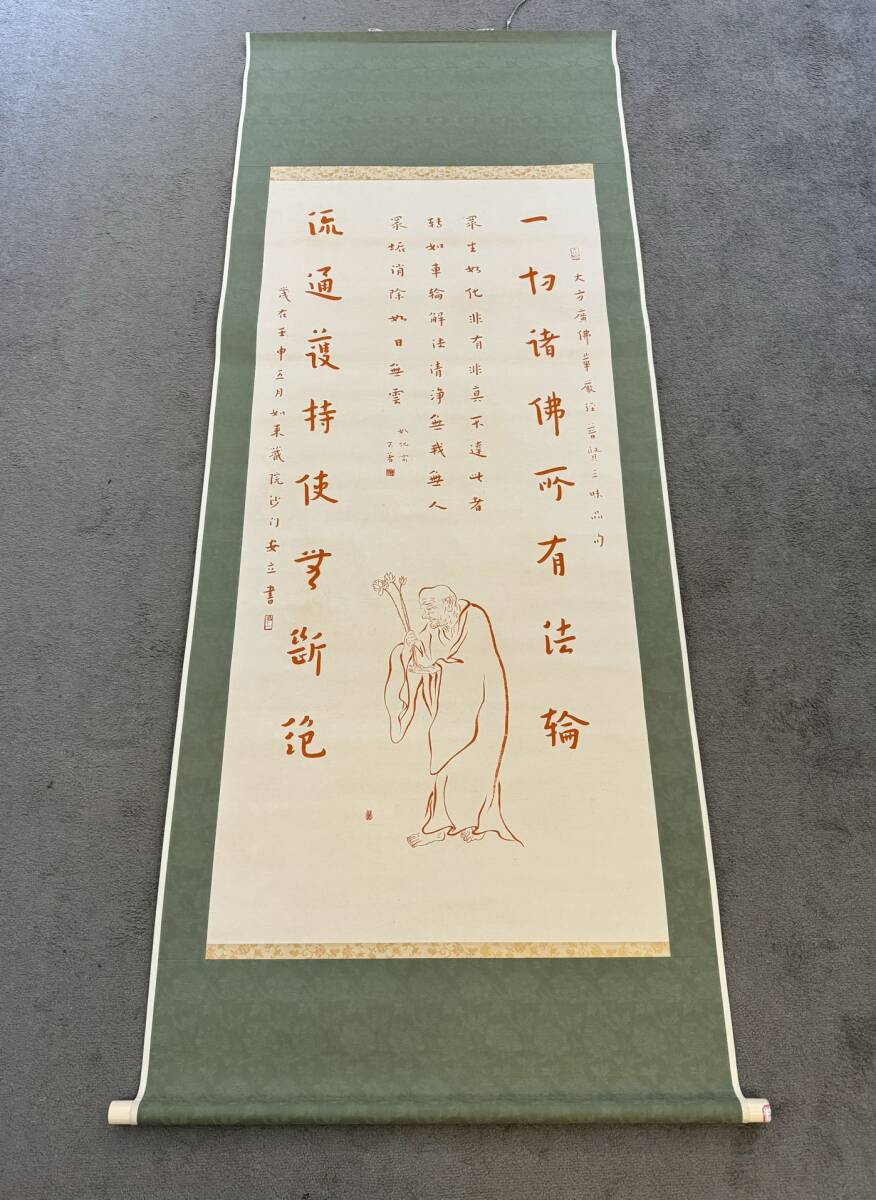 大方廣佛華嚴経普賢三昧品句
一切诸佛所有法轮
眾生如化非有非真不達此者
转如車輪解法清淨無我無人
眾垢消除如日無雲
流通護持使無斷绝
歲在壬申五月如東藏院沙门安立書